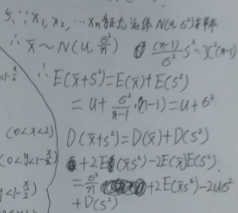 5. ∵ x₁, x₂, … xₙ 总体 N(u, σ²)
∴ x̄ ~ N(u, σ²/n) (n-1)/σ² s² ~ χ²(n-1)
∴ E(x̄+S²) = E(x̄) + E(S²)
= u + σ²/(n-1) (n-1) = u + σ²
D(x̄+S²) = D(x̄) + D(S²)
+ 2E(x̄S²) - 2E(x̄)E(S²)
= σ²/n + 2E(x̄S²) - 2uσ²
+ D(S²)
<1-x/2
(0<x<2)
(0<y<1-x/2)
y<1-x/2)